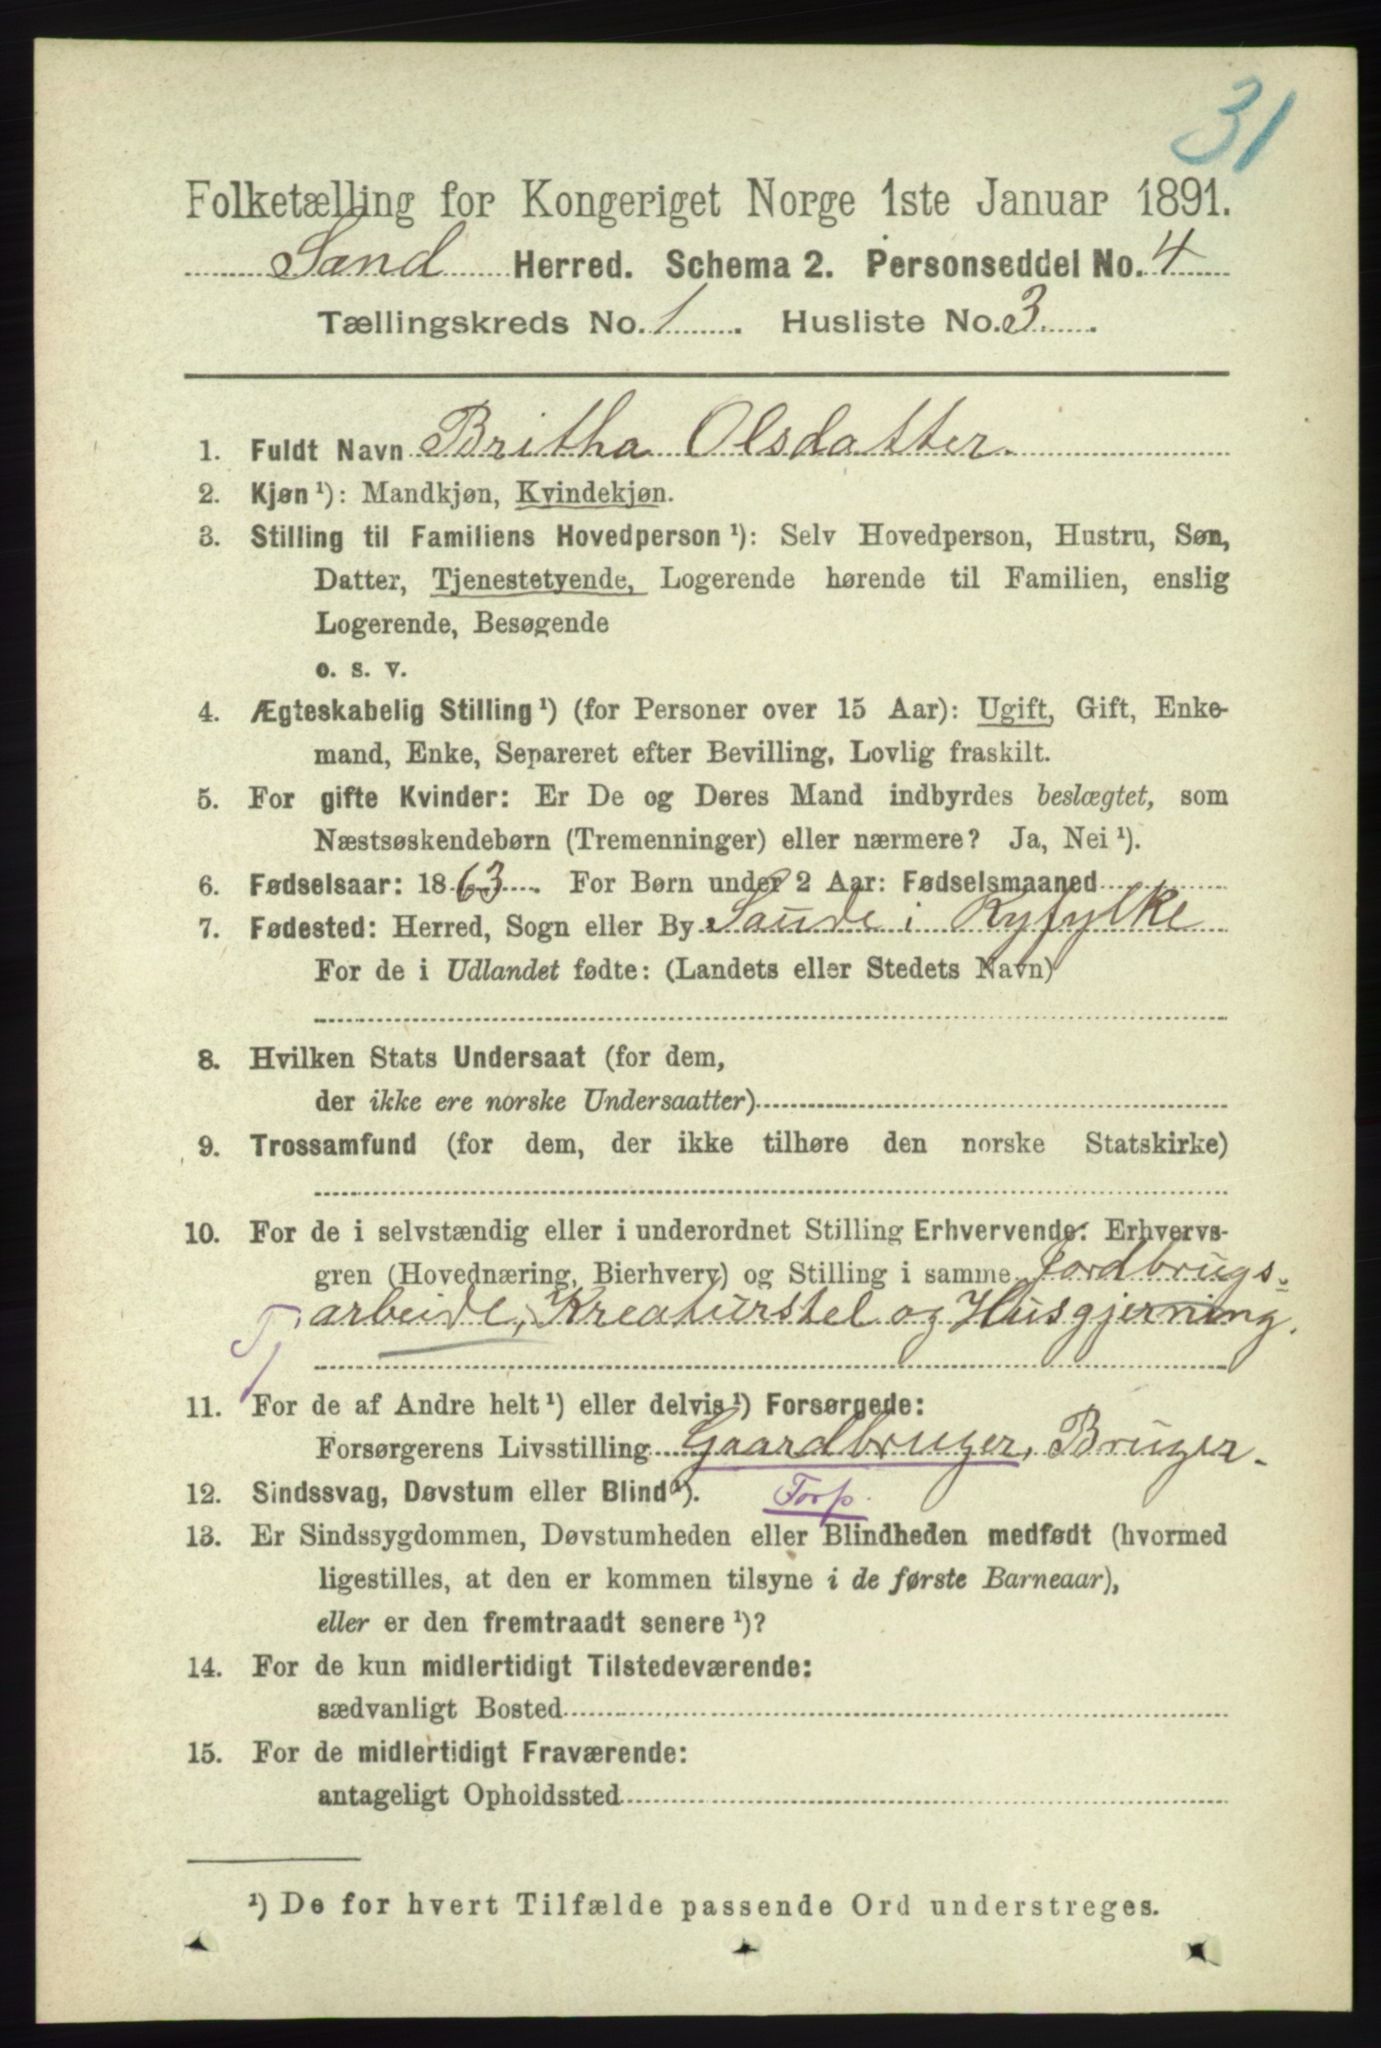 31
Folketælling for Kongeriget Norge 1ste Januar 1891.
Sand Herred. Schema 2. Personseddel No. 4
Tællingskreds No. 1. Husliste No. 3.
1. Fuldt Navn Britha Olsdatter.
2. Kjøn ¹): Mandkjøn, Kvindekjøn.
3. Stilling til Familiens Hovedperson ¹): Selv Hovedperson, Hustru, Søn,
Datter, Tjenestetyende, Logerende hørende til Familien, enslig
Logerende, Besøgende
o. s. v.
4. Ægteskabelig Stilling ¹) (for Personer over 15 Aar): Ugift, Gift, Enke-
mand, Enke, Separeret efter Bevilling, Lovlig fraskilt.
5. For gifte Kvinder: Er De og Deres Mand indbyrdes beslægtet, som
Næstsøskendebørn (Tremenninger) eller nærmere? Ja, Nei ¹).
6. Fødselsaar: 1863. For Børn under 2 Aar: Fødselsmaaned
7. Fødested: Herred, Sogn eller By Saude i Ryfylke
For de i Udlandet fødte: (Landets eller Stedets Navn)
8. Hvilken Stats Undersaat (for dem,
der ikke ere norske Undersaatter)
9. Trossamfund (for dem, der ikke tilhøre den norske Statskirke)
10. For de i selvstændig eller i underordnet Stilling Erhvervende: Erhvervs-
gren (Hovednæring, Bierhverv) og Stilling i samme Jordbrugs-
Tj arbeide, Kreaturstel og Husgjerning.
11. For de af Andre helt ¹) eller delvis ¹) Forsørgede:
Forsørgerens Livsstilling Gaardbruger, Bruger.
12. Sindssvag, Døvstum eller Blind ¹). Torp.
13. Er Sindssygdommen, Døvstumheden eller Blindheden medfødt (hvormed
ligestilles, at den er kommen tilsyne i de første Barneaar),
eller er den fremtraadt senere ¹)?
14. For de kun midlertidigt Tilstedeværende:
sædvanligt Bosted
15. For de midlertidigt Fraværende:
antageligt Opholdssted
¹) De for hvert Tilfælde passende Ord understreges.